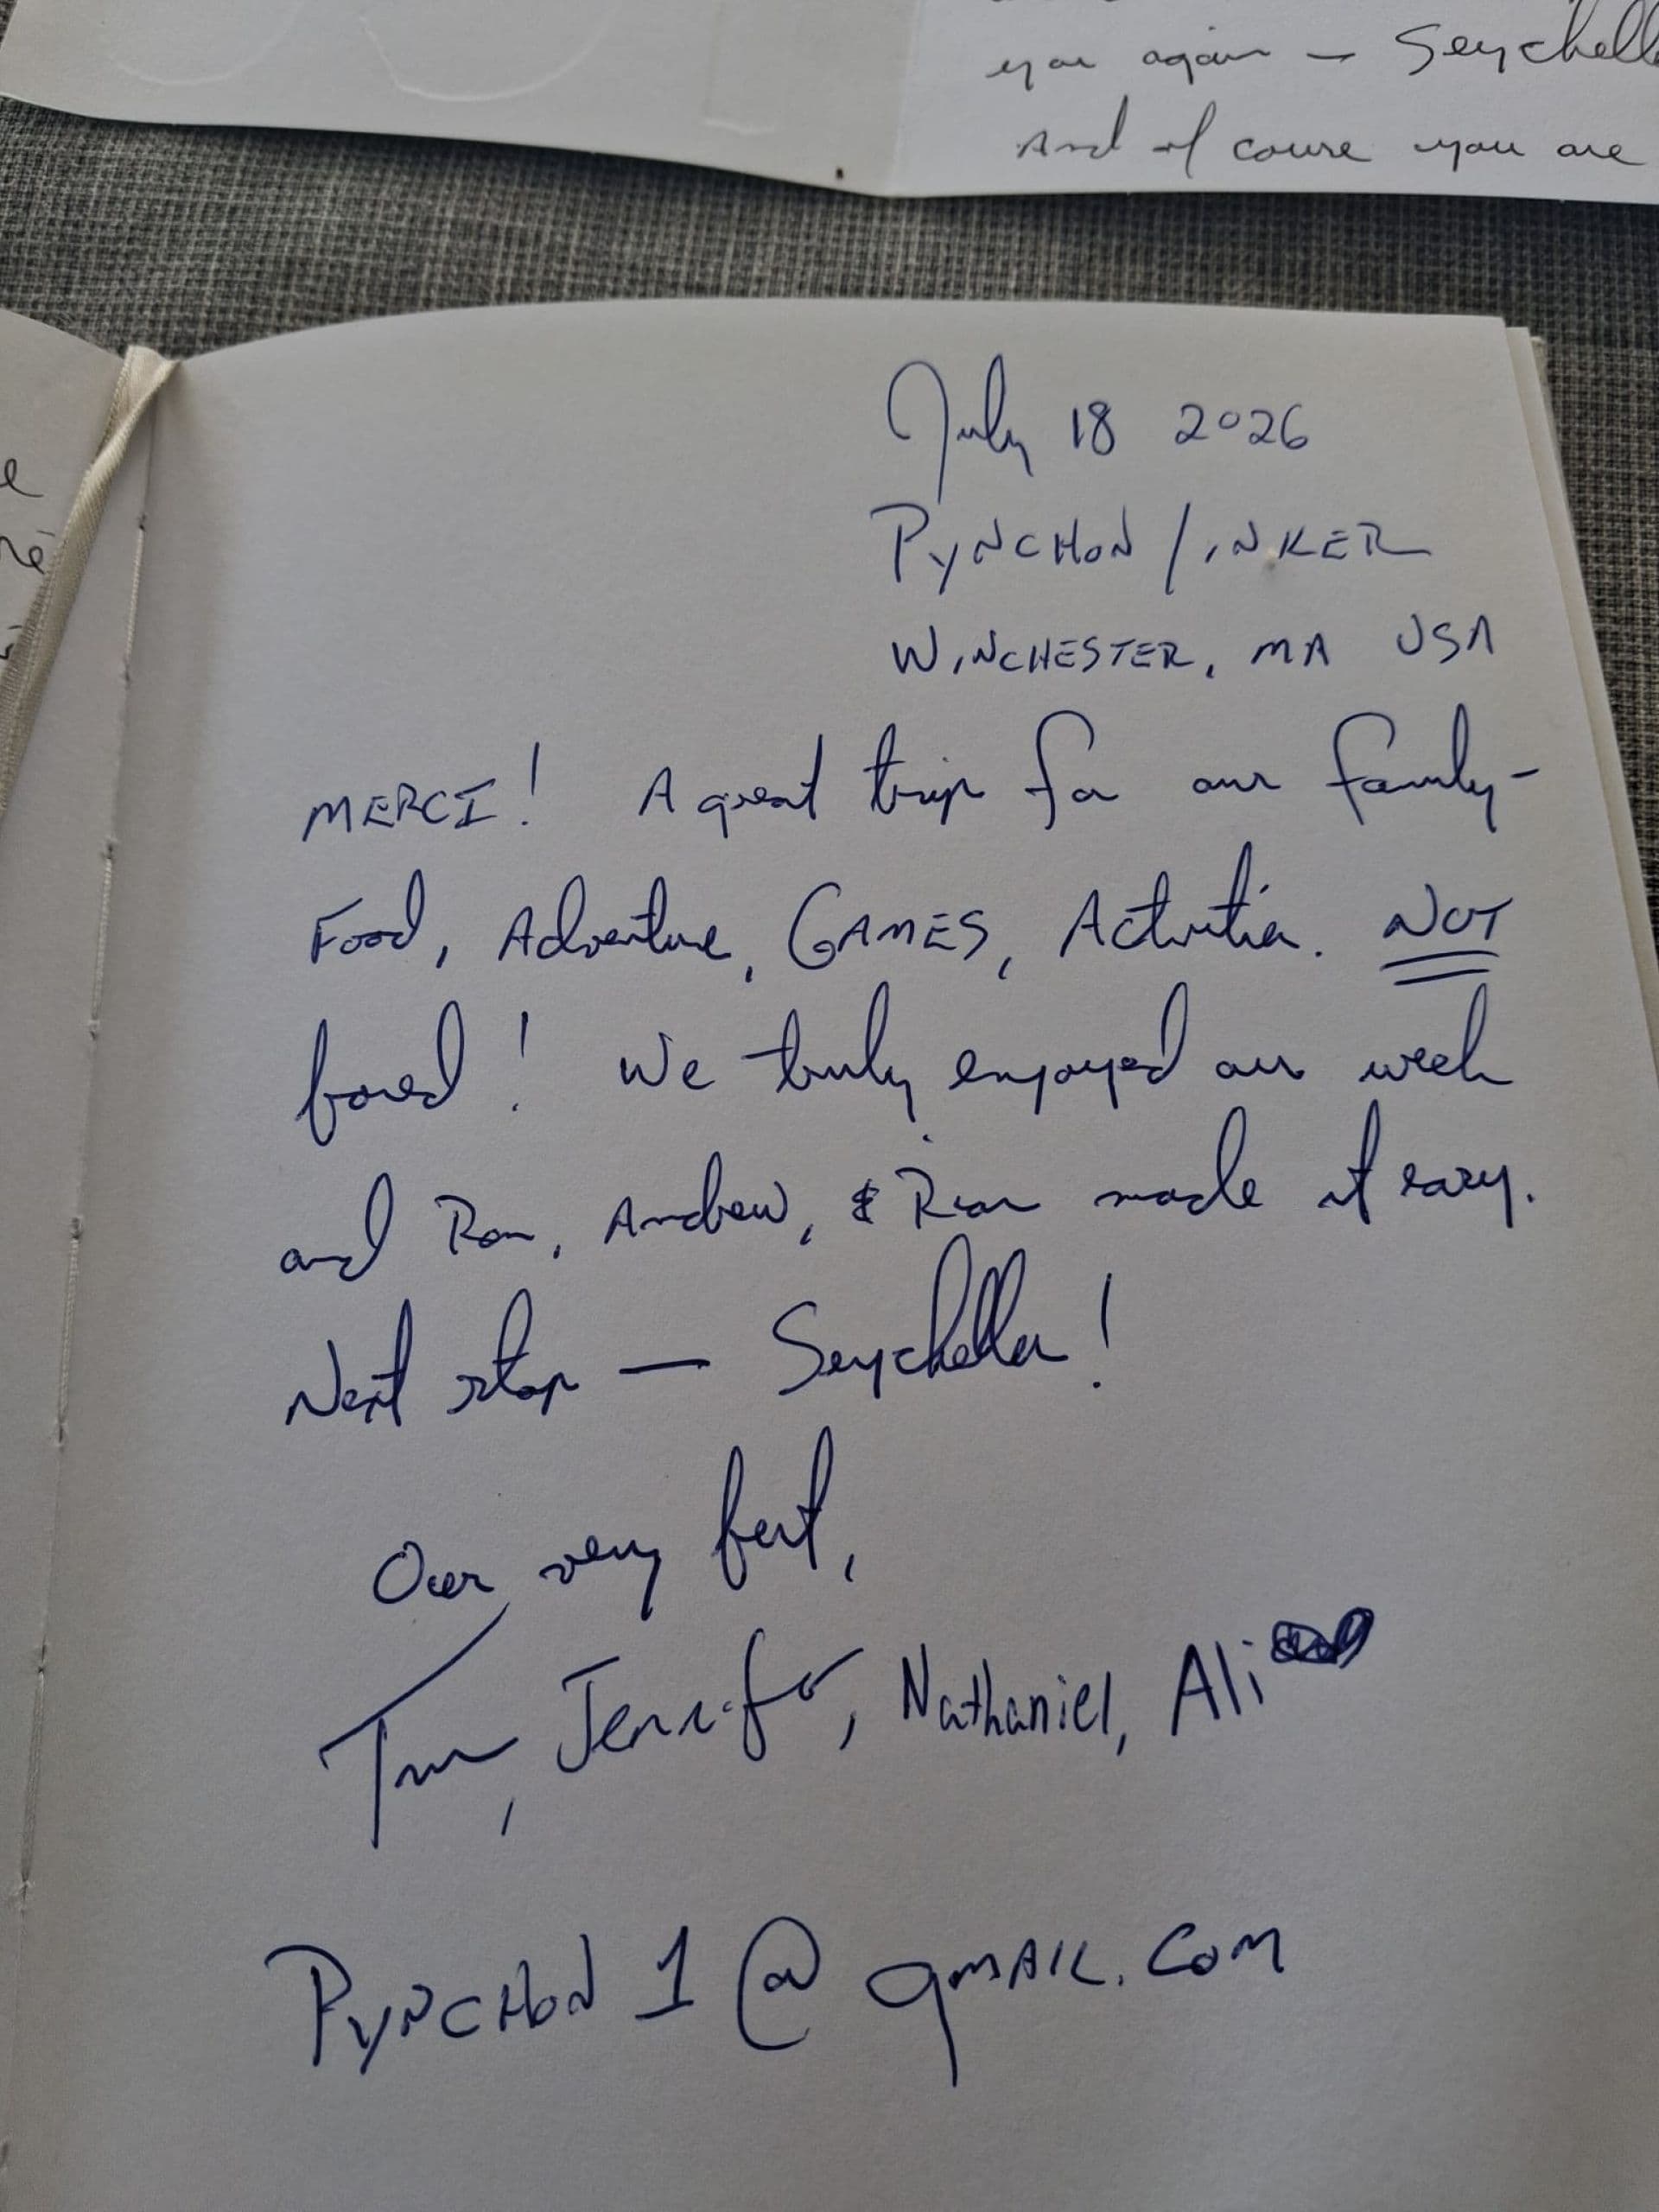 you again — Seychelle
And of course you are
July 18 2026
PYNCHON / INKER
WINCHESTER, MA USA
MERCI! A great trip for our family-
Food, Adventure, GAMES, Activities. NOT
bored! We truly enjoyed our week
and Ron, Andrew, & Rion made it easy.
Next stop — Seychelles!
Our very best,
Jennifer, Nathaniel, Ali
PYNCHON1@gmail.com